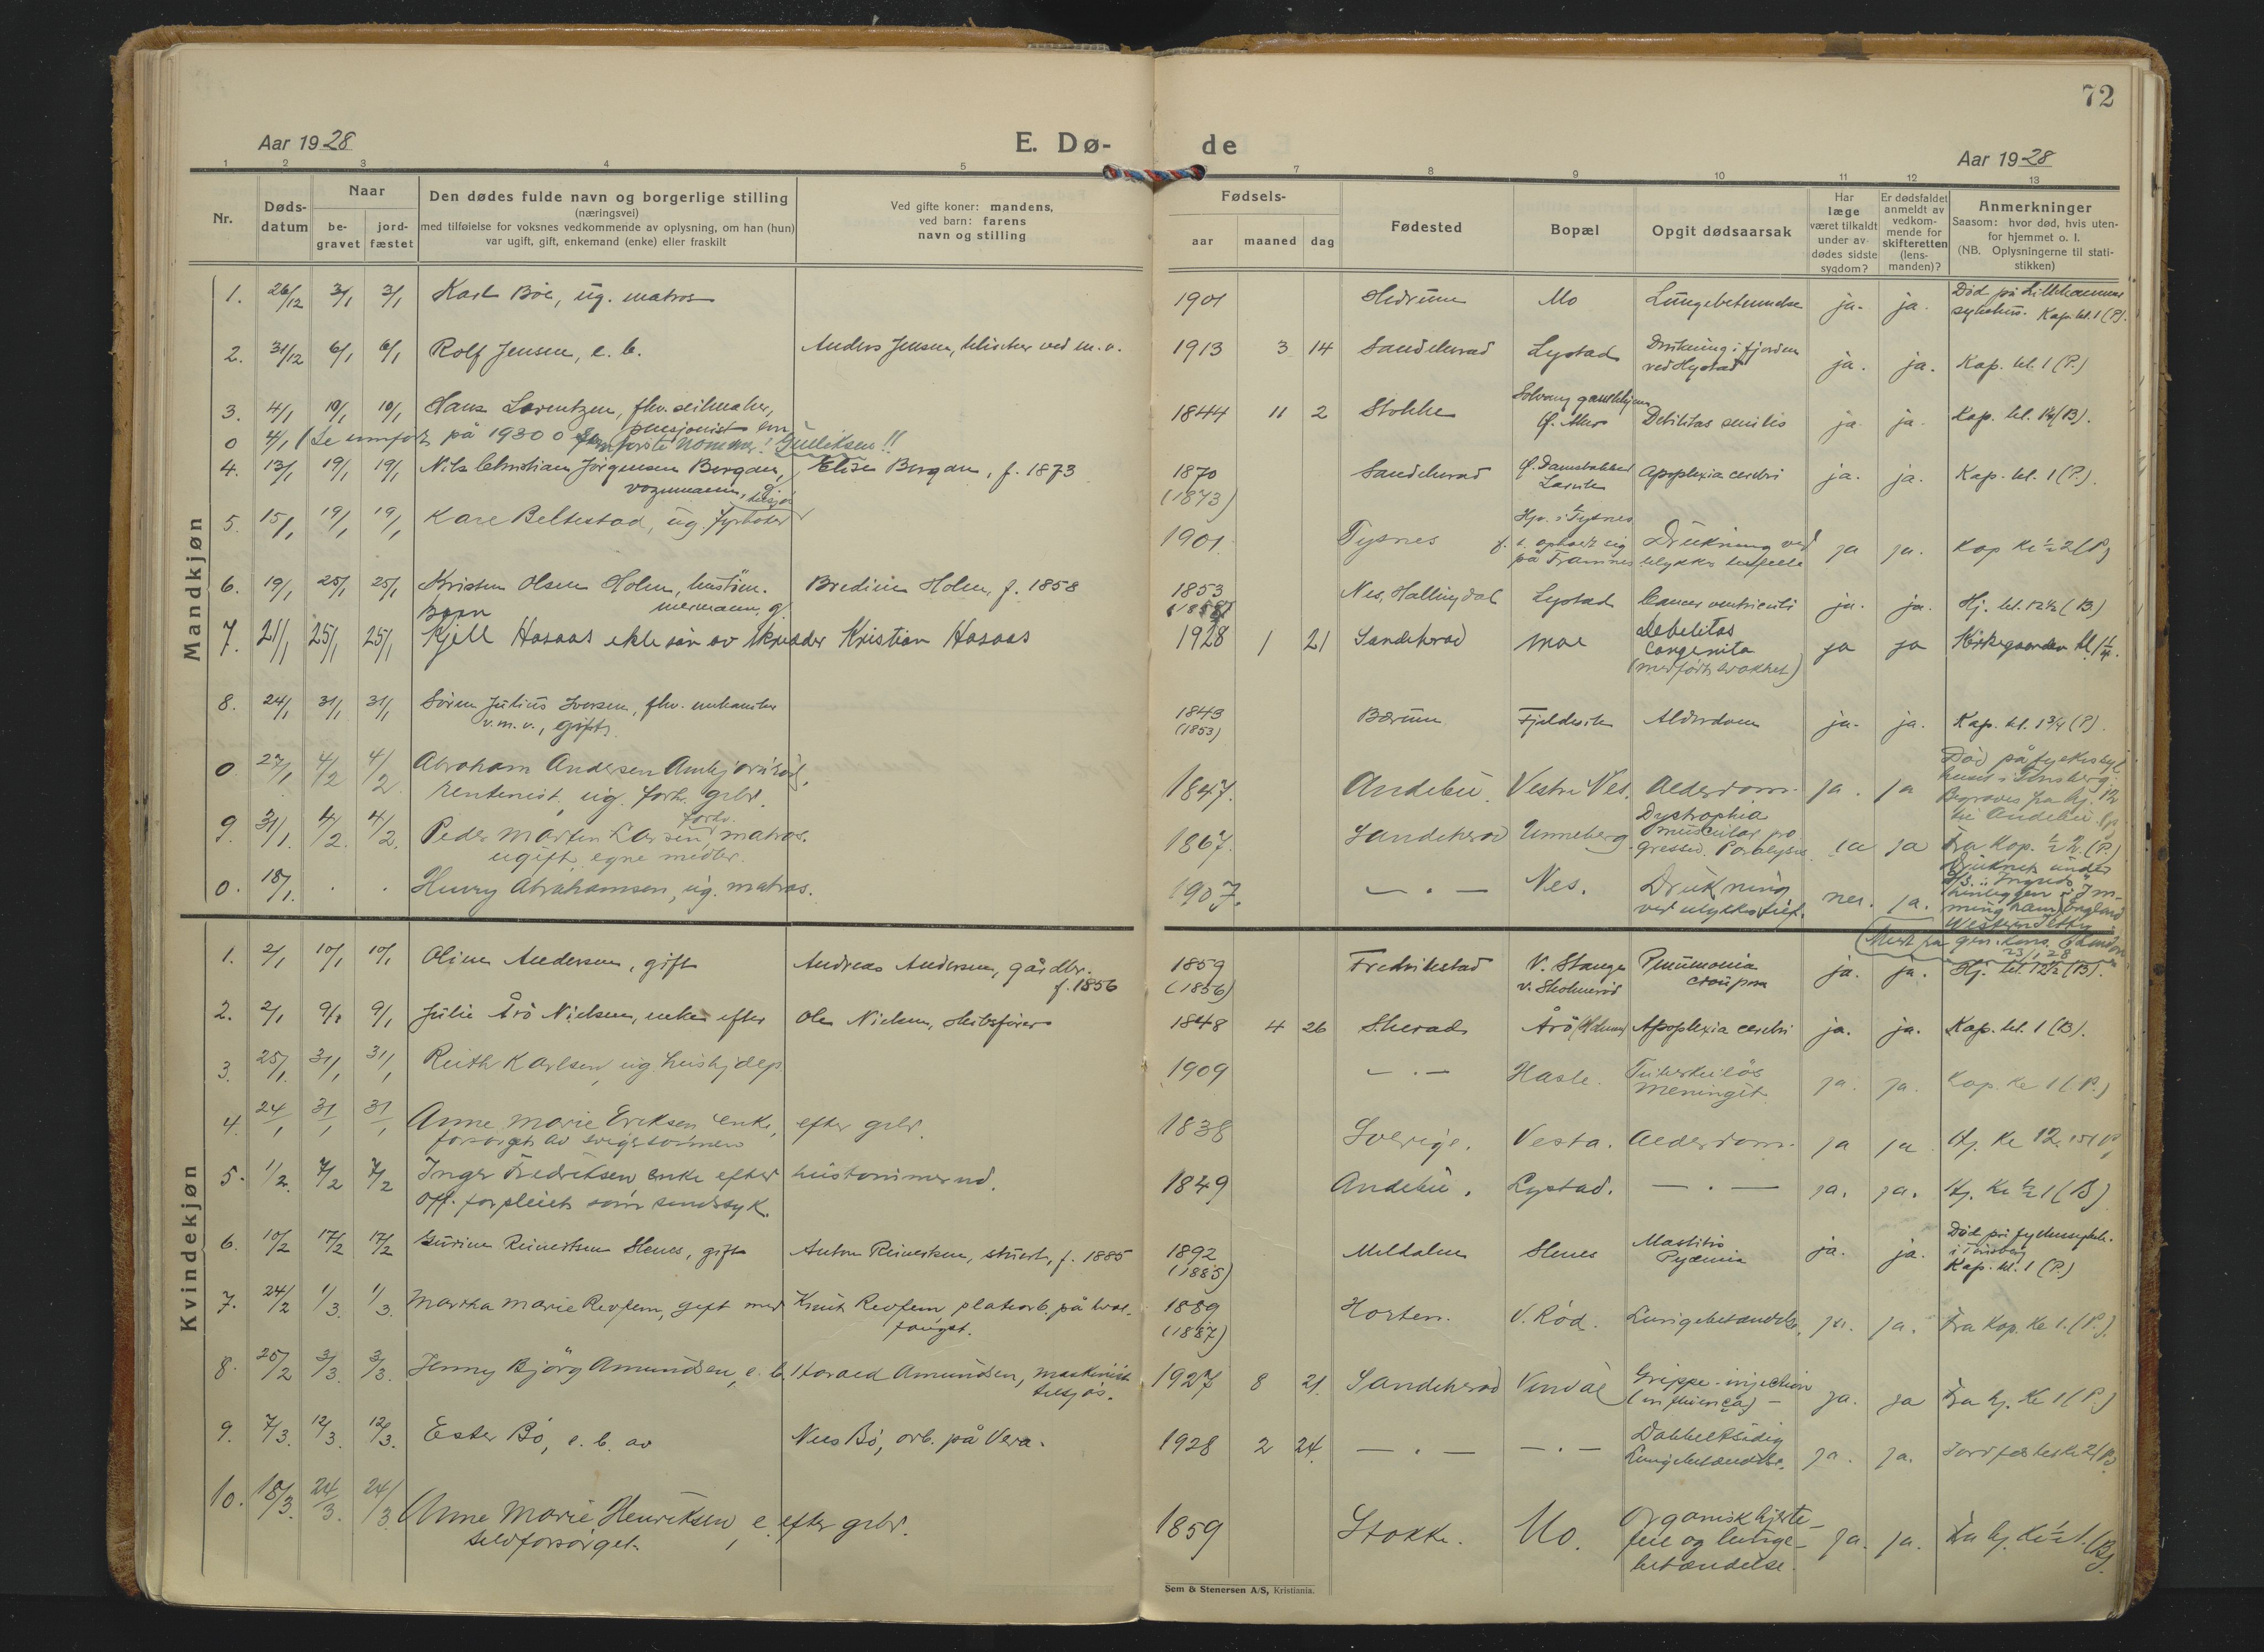 72
Aar 1928
E. Dø-
de
Aar 1928
1 2 3 4 5 7 8 9 10 11 12 13
Nr.
Døds-
datum
Naar
be-
gravet
jord-
fæstet
Den dødes fulde navn og borgerlige stilling
(næringsvei)
med tilføielse for voksnes vedkommende av oplysning, om han (hun)
var ugift, gift, enkemand (enke) eller fraskilt
Ved gifte koner: mandens,
ved barn: farens
navn og stilling
Fødsels-
aar maaned dag
Fødested
Bopæl
Opgit dødsaarsak
Har
læge
været tilkaldt
under av-
dødes sidste
sygdom?
Er dødsfaldet
anmeldt av
vedkom-
mende for
skifteretten
(lens-
manden)?
Anmerkninger
Saasom: hvor død, hvis uten-
for hjemmet o. l.
(NB. Oplysningerne til stati-
stikken)
Mandkjøn
1. 26/12 3/1 3/1 Karl Bøe, ug. matros 1901 Hedrum Mo Lungebetennelse ja. ja. Død på Lillehammer
sykehus. Kap. kl. 1 (P).
2. 31/12 6/1 6/1 Rolf Jensen, e. b. Anders Jensen, ved m. v. 1913 3 14 Sandeherad Lystad Drukning i fjorden
ved Hystad ja. ja. Kap. kl. 1 (P.)
3. 4/1 10/1 10/1 Hans Lorentzen, fhv. seilmaker,
pensjonist, em 1844 11 2 Stokke Solvang gamlehjem
Ø. Aker Debilitas senilis ja. ja. Kap. kl. (B).
0 4/1 (Se innført på 1930 0 første nommer! Gulliksen!!
4. 13/1 19/1 19/1 Nils Christian Jörgensen Bergan,
vognmann, g. Elise Bergan, f. 1873 1870
(1873) Sandeherad Ø. Damstakken
Larvik Apoplexia cerebri ja. ja. Kap. kl. 1 (P.).
5. 15/1 19/1 19/1 Kåre Beltestad, ug. fyrbøter
tilsjøs 1901. Tysnes Hjv. i Tysnes
f. t. opholdt sig
på Framnes Drukning ved
ulykkestilfelle ja ja. Kap Kl ½ 2 (P)
6. 19/1 25/1 25/1 Kristen Olsen Holm, hustöm-
mermann, g. Bredine Holm, f. 1858 1853
(1858) Nes, Hallingdal Lystad Cancer ventriculi ja. ja. Hj. kl. 12½ (B)
7. 21/1 25/1 25/1 Barn
Kjell Hasaas ekte sön av skredder Kristian Hasaas 1928 1 21 Sandeherad Moe Debelitas
Congenita
(medfödt svakhet) ja ja Kirkegaarden kl
8. 24/1 31/1 31/1 Sören Julius Iversen, fhv. mekaniker
v. m. v., gift 1843
(1853) Bærum Fjeldvik Alderdom ja. ja. Kap. kl. 1¾ (P).
0 27/1 4/2 4/2 Abraham Andersen
rentenist, ug. forh. grbr. 1847. Andebu. Vestre Nes. Alderdom. ja. ja Död på fylkessyke-
huset i Tønsberg.
Begraves fra hj.
til Andebu.
9. 31/1. 4/2. 4/2. Peder Martin Larsen, forhv. matros.
ugift, egne midler. 1867. Sandeherad Unneberg. Dystrophia
muscular pro
gressiv. Paralysis ja ja Fra Kap. (P.)
0. 18/1. . . Henry Abrahamsen, ug. matros. 1907. — . — Nes. Drukning
ved ulykkestilf. nei. ja. Druknet under
"Ingrid"
England
Western Jetty
23/1 28
Kvindekjøn
1. 2/1 10/1 10/1 Oline Andersen, gift Andreas Andersen, gårdbr.
f. 1856 1859
(1856) Fredrikstad V. Stange
v. Skolmeröd Pneumonia
crouposa ja. ja. Hj. kl. 12½ (B).
2. 2/1 9/1 9/1 Julie Årö Nielsen, enke efter Ole Nielsen, skibsfører 1848 4 26 S.herad Årö Apoplexia cerebri ja. ja. Kap. kl. 1 (B).
3. 25/1. 31/1 31/1 Ruth Karlsen, ug. hushjelp 1909 — . — Hasle. Tuberkulös
Meningit ja. ja. Kap. Kl 1 (P.)
4. 24/1 31/1 31/1 Anne Marie Eriksen enke, efter grbr.
forsörget av svigersönnen 1838 Sverige. Vesta. Alderdom. ja ja Hj. Kl 12
5. 1/2. 7/2 7/2 Inger Fredriksen enke efter hustömmermd.
Off. forpleiet som sindssyk. 1849 Andebu. Lystad. — . — ja. ja. Hj. Kl ½ 1 (B)
6. 10/2 17/2 17/2 Gurine Reinertsen Hemes, gift Anton Reinertsen, stuert, f. 1885 1892
(1885) Meldalen Hemes Mastitis
Pyæmia ja. ja. Død på fylkessykeh.
i Tønsberg
Kap. kl. 1 (P.)
7. 24/2 1/3. 1/3. Martha Marie Revfem, gift med Knut Revfem, platearb. på hval-
fangst. 1889
(1887) Horten. V. Rød. Lungebetændelse. ja. ja. Fra Kap. Kl 1. (P.).
8. 25/2 3/3. 3/3. Jenny Bjørg Amundsen, e. b. Harald Amundsen, maskinist
tilsjøs. 1927 8 21. Sandeherad Vindal Grippe-injection
(influenca) — ja. ja Fra hj. Kl 1 (P.)
9. 7/3. 12/3. 12/3. Ester Bö, e. b. av Nils Bö, arb. på Vera. 1928 2 24. — . — — . — Dobbeltsidig
Lungebetændelse. ja. ja. Jordfæstes Kl 2 (P.)
10. 18/3. 24/3. 24/3. Anne Marie Henriksen, e. efter grbr.
selvforsörget. 1859 Stokke. Mo. Organisk hjerte-
feil og lunge-
betændelse. ja. ja. Fra hj. Kl ½ 1. (B).
Sem & Stenersen A/S, Kristiania.